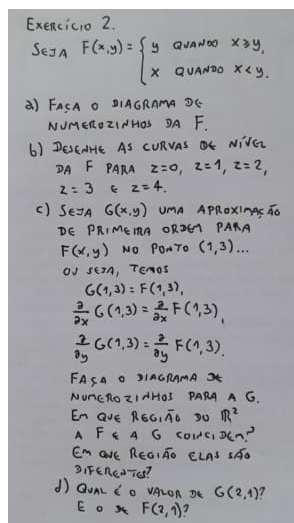 EXERCÍCIO 2.
SEJA F(x,y) = { y QUANDO x ≥ y,
x QUANDO x < y.
a) FAÇA O DIAGRAMA DE
NUMEROZINHOS DA F.
b) DESENHE AS CURVAS DE NÍVEL
DA F PARA z=0, z=1, z=2,
z=3 E z=4.
c) SEJA G(x,y) UMA APROXIMAÇÃO
DE PRIMEIRA ORDEM PARA
F(x,y) NO PONTO (1,3)...
OU SEJA, TEMOS
G(1,3) = F(1,3),
∂/∂x G(1,3) = ∂/∂x F(1,3),
∂/∂y G(1,3) = ∂/∂y F(1,3).
FAÇA O DIAGRAMA DE
NUMEROZINHOS PARA A G.
EM QUE REGIÃO DO ℝ²
A F E A G COINCIDEM?
EM QUE REGIÃO ELAS SÃO
DIFERENTES?
d) QUAL É O VALOR DE G(2,1)?
E O DE F(2,1)?